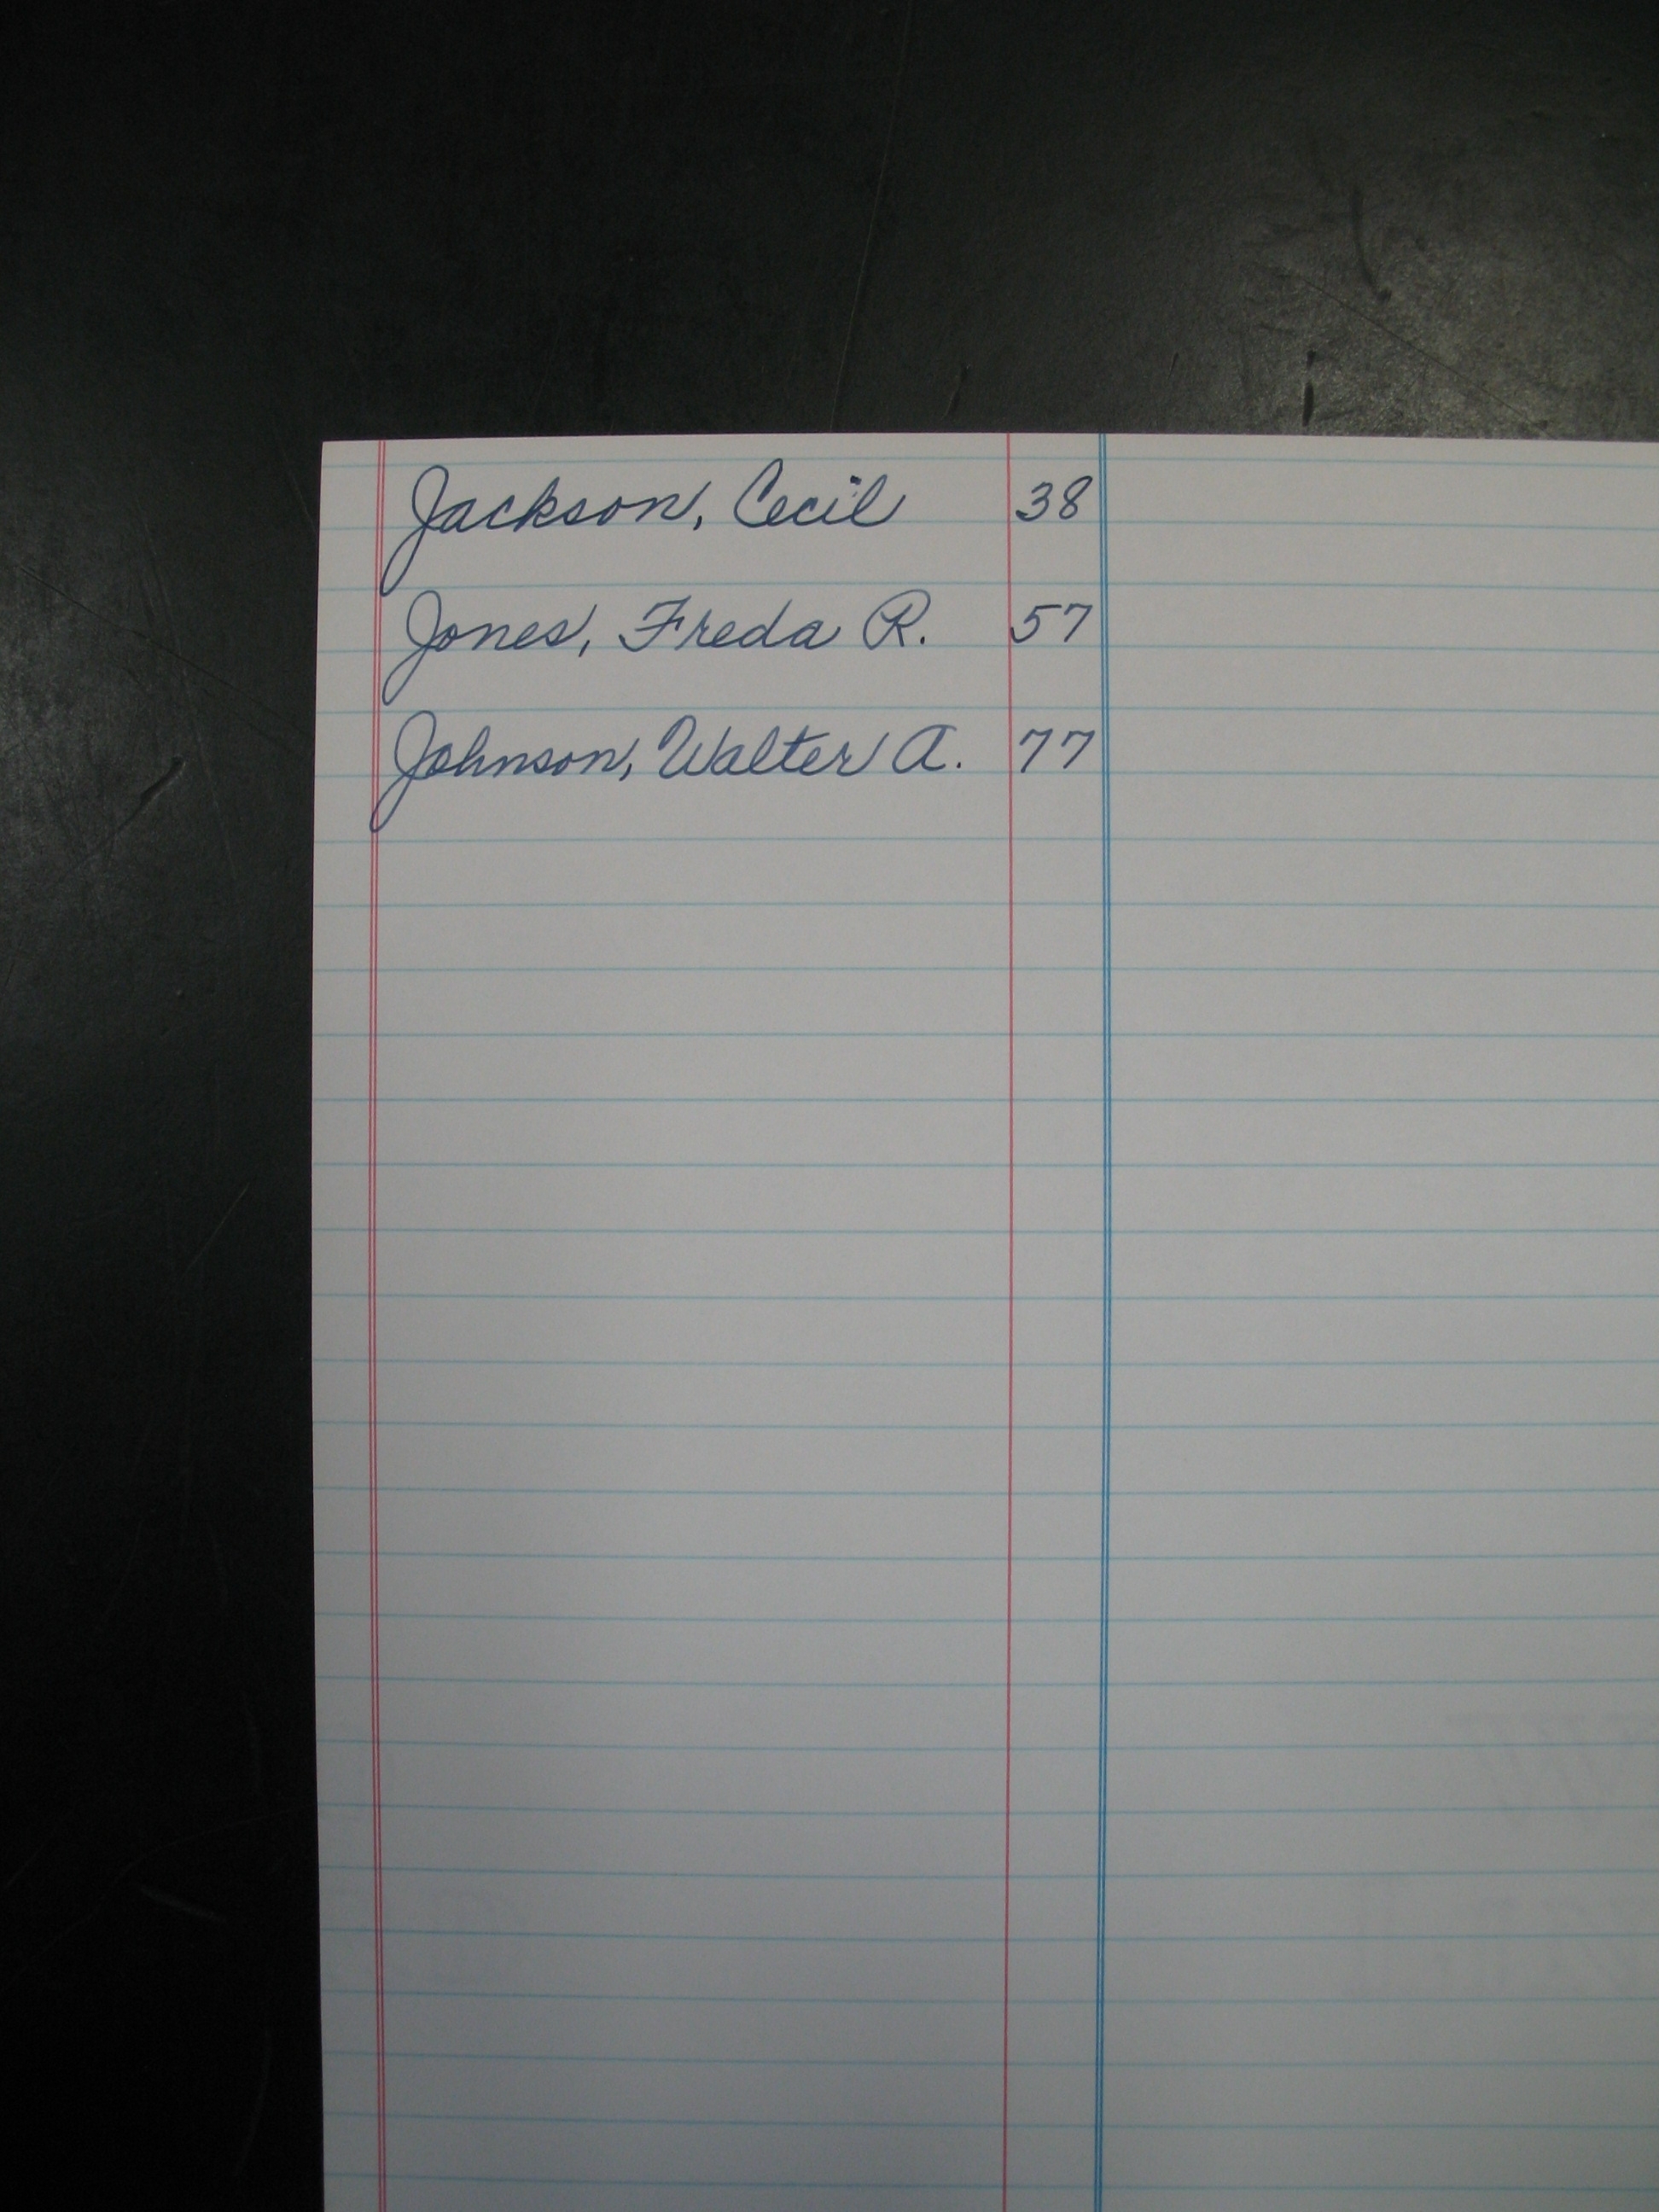 Jackson, Cecil 38
Jones, Freda R. 57
Johnson, Walter A. 77